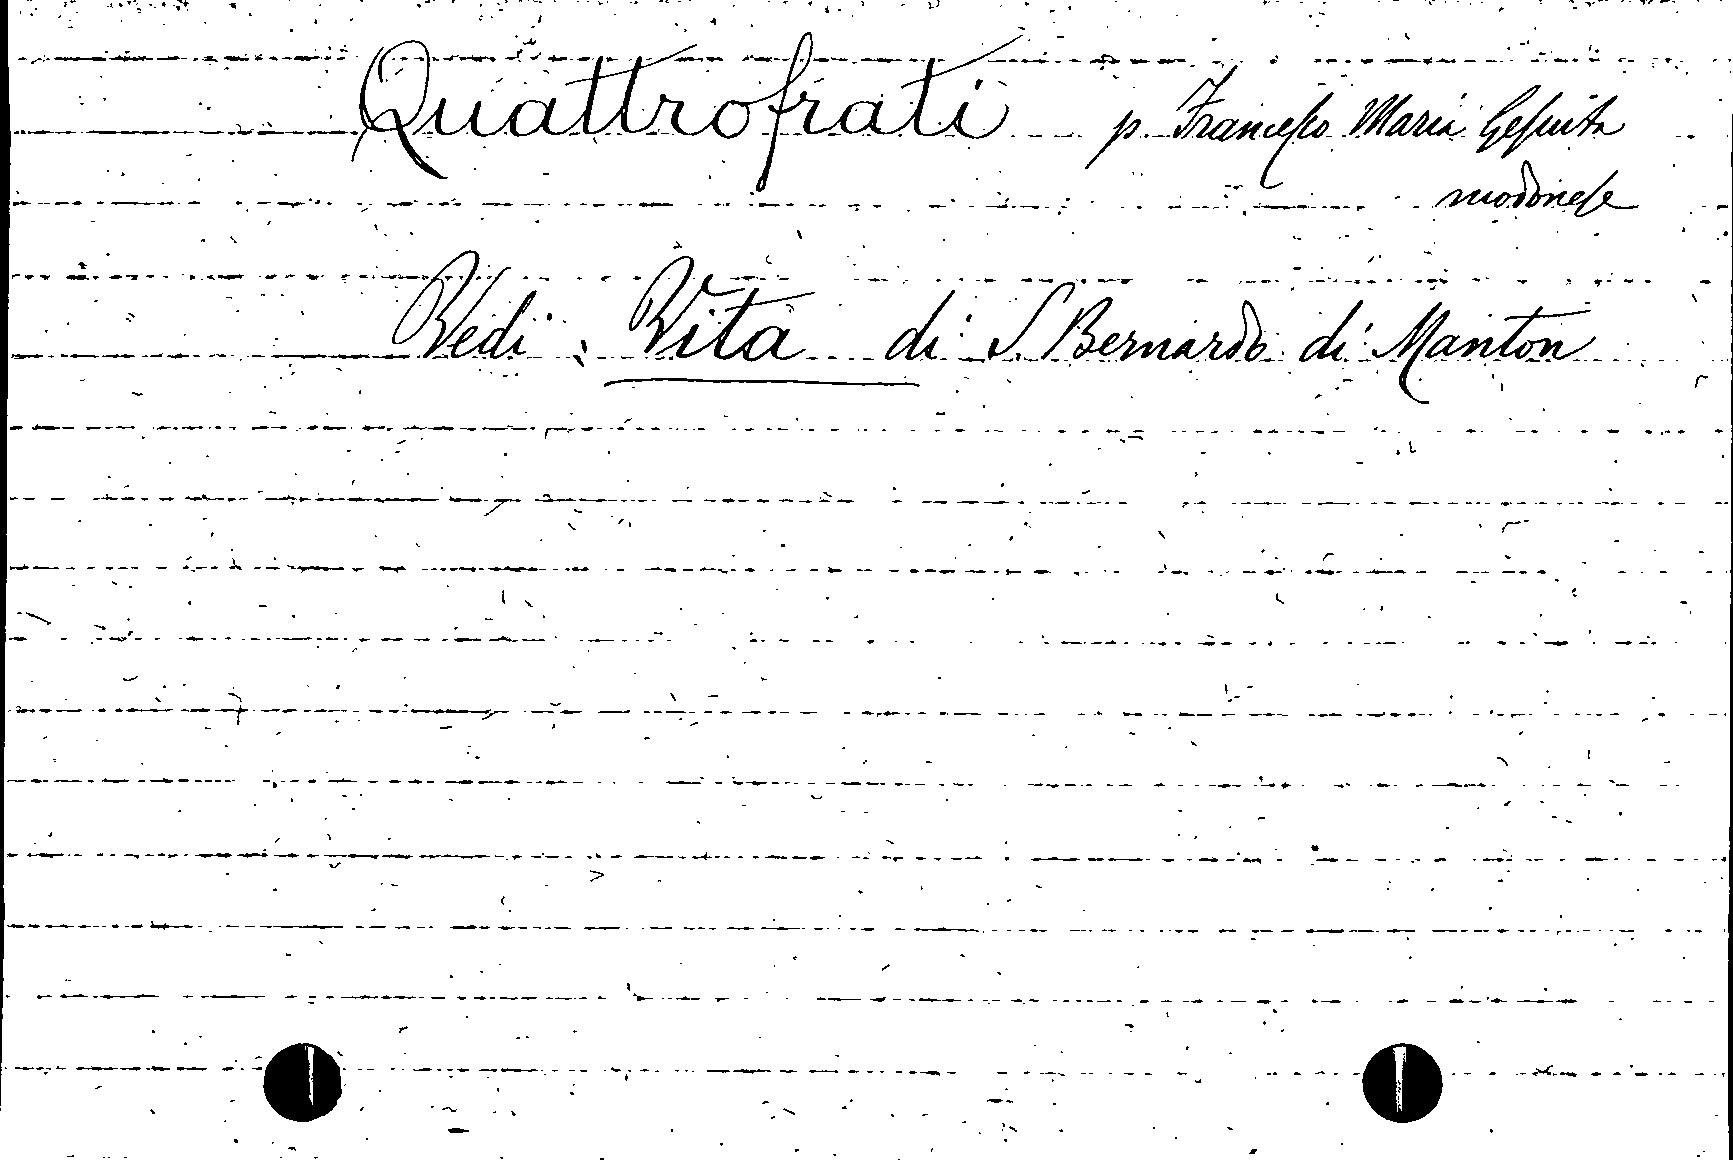 Quattrofrati p. Francesco Maria Gesuita
modonese
Vedi: Vita di S. Bernardo di Manton